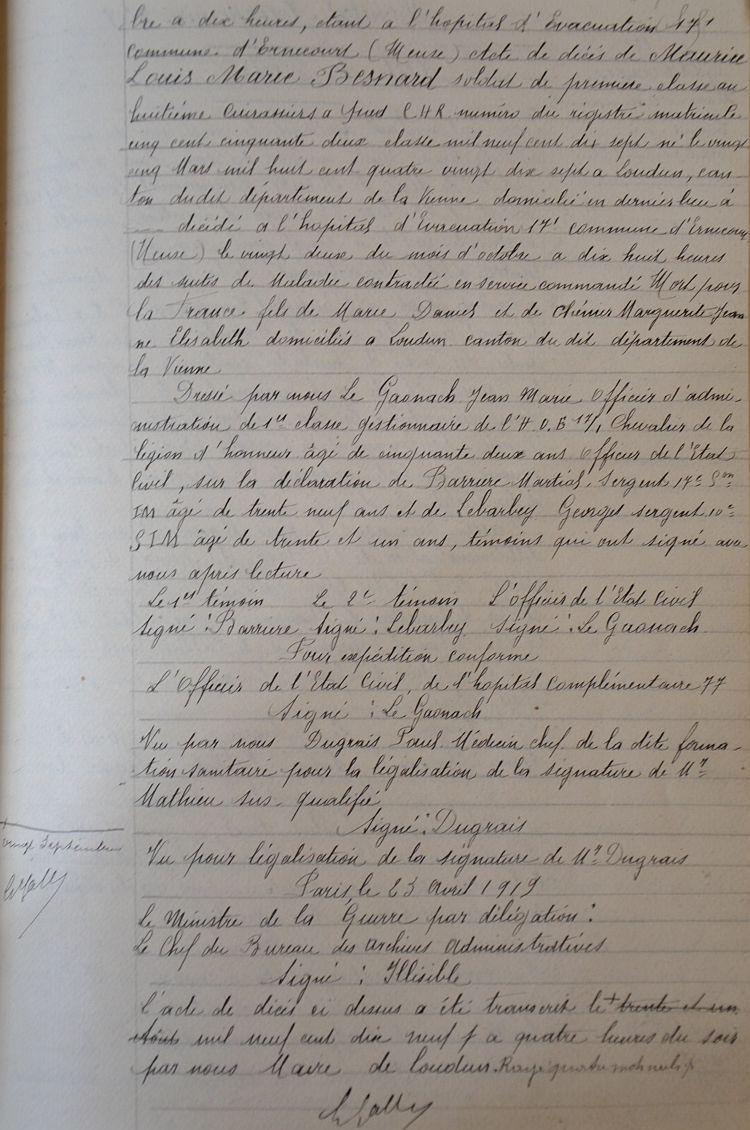 bre a dix heures, étant a l'hopital d'Evacuation 17/1
commune d'Ernecourt (Meuse) Acte de décès de Maurice
Louis Marie Besnard soldat de première classe au
huitième cuirassiers a pied CHR numéro du régistre matricule
cinq cent cinquante deux classe mil neuf cent dix sept né le vingt
cinq Mars mil huit cent quatre vingt dix sept a Loudun, can-
ton dudit département de la Vienne domicilié en dernier lieu à
décédé a l'hopital d'Evacuation 17/1 commune d'Ernecourt
(Meuse) le vingt deux du mois d'octobre a dix huit heures
des suites de Maladie contractée en service commandé Mort pour
la France fils de Marie Daniel et de Chénier Marguerite Jean
ne Elisabeth domiciliés a Loudun canton du dit département de
la Vienne
Dressé par nous Le Gaonach Jean Marie Officier d'admi-
nistration de 1re classe gestionnaire de l'H.O.E 17/1 Chevalier de la
légion d'honneur âgé de cinquante deux ans Officier de l'Etat
Civil, sur la déclaration de Barriere Martial, Sergent 17e Son
IM âgé de trente neuf ans et de Lebarbey Georges sergent 10e
SIM âgé de trente et un ans, témoins qui ont signé avec
nous après lecture
Le 1er témoin Le 2e témoin L'officier de l'Etat Civil
signé : Barriere signé : Lebarbey signé : Le Gaonach
Pour expédition conforme
L'Officier de l'Etat Civil, de l'hopital Complémentaire 77
Signé : Le Gaonach
Vu par nous Dugrais Paul Médecin chef de la dite forma-
tion sanitaire pour la légalisation de la signature de Mr
Mathieu sus-qualifié
Signé : Dugrais
vingt Septembre
Vu pour légalisation de la signature de Mr Dugrais
Paris, le 23 Avril 1919
Le Ministre de la Guerre par délégation :
Le Chef du Bureau des archives administratives
Signé : Illisible
l'acte de décès ci dessus a été transcrit le + trente et un
Août mil neuf cent dix neuf a quatre heures du soir
par nous Maire de Loudun. Rayé quatre mots nuls